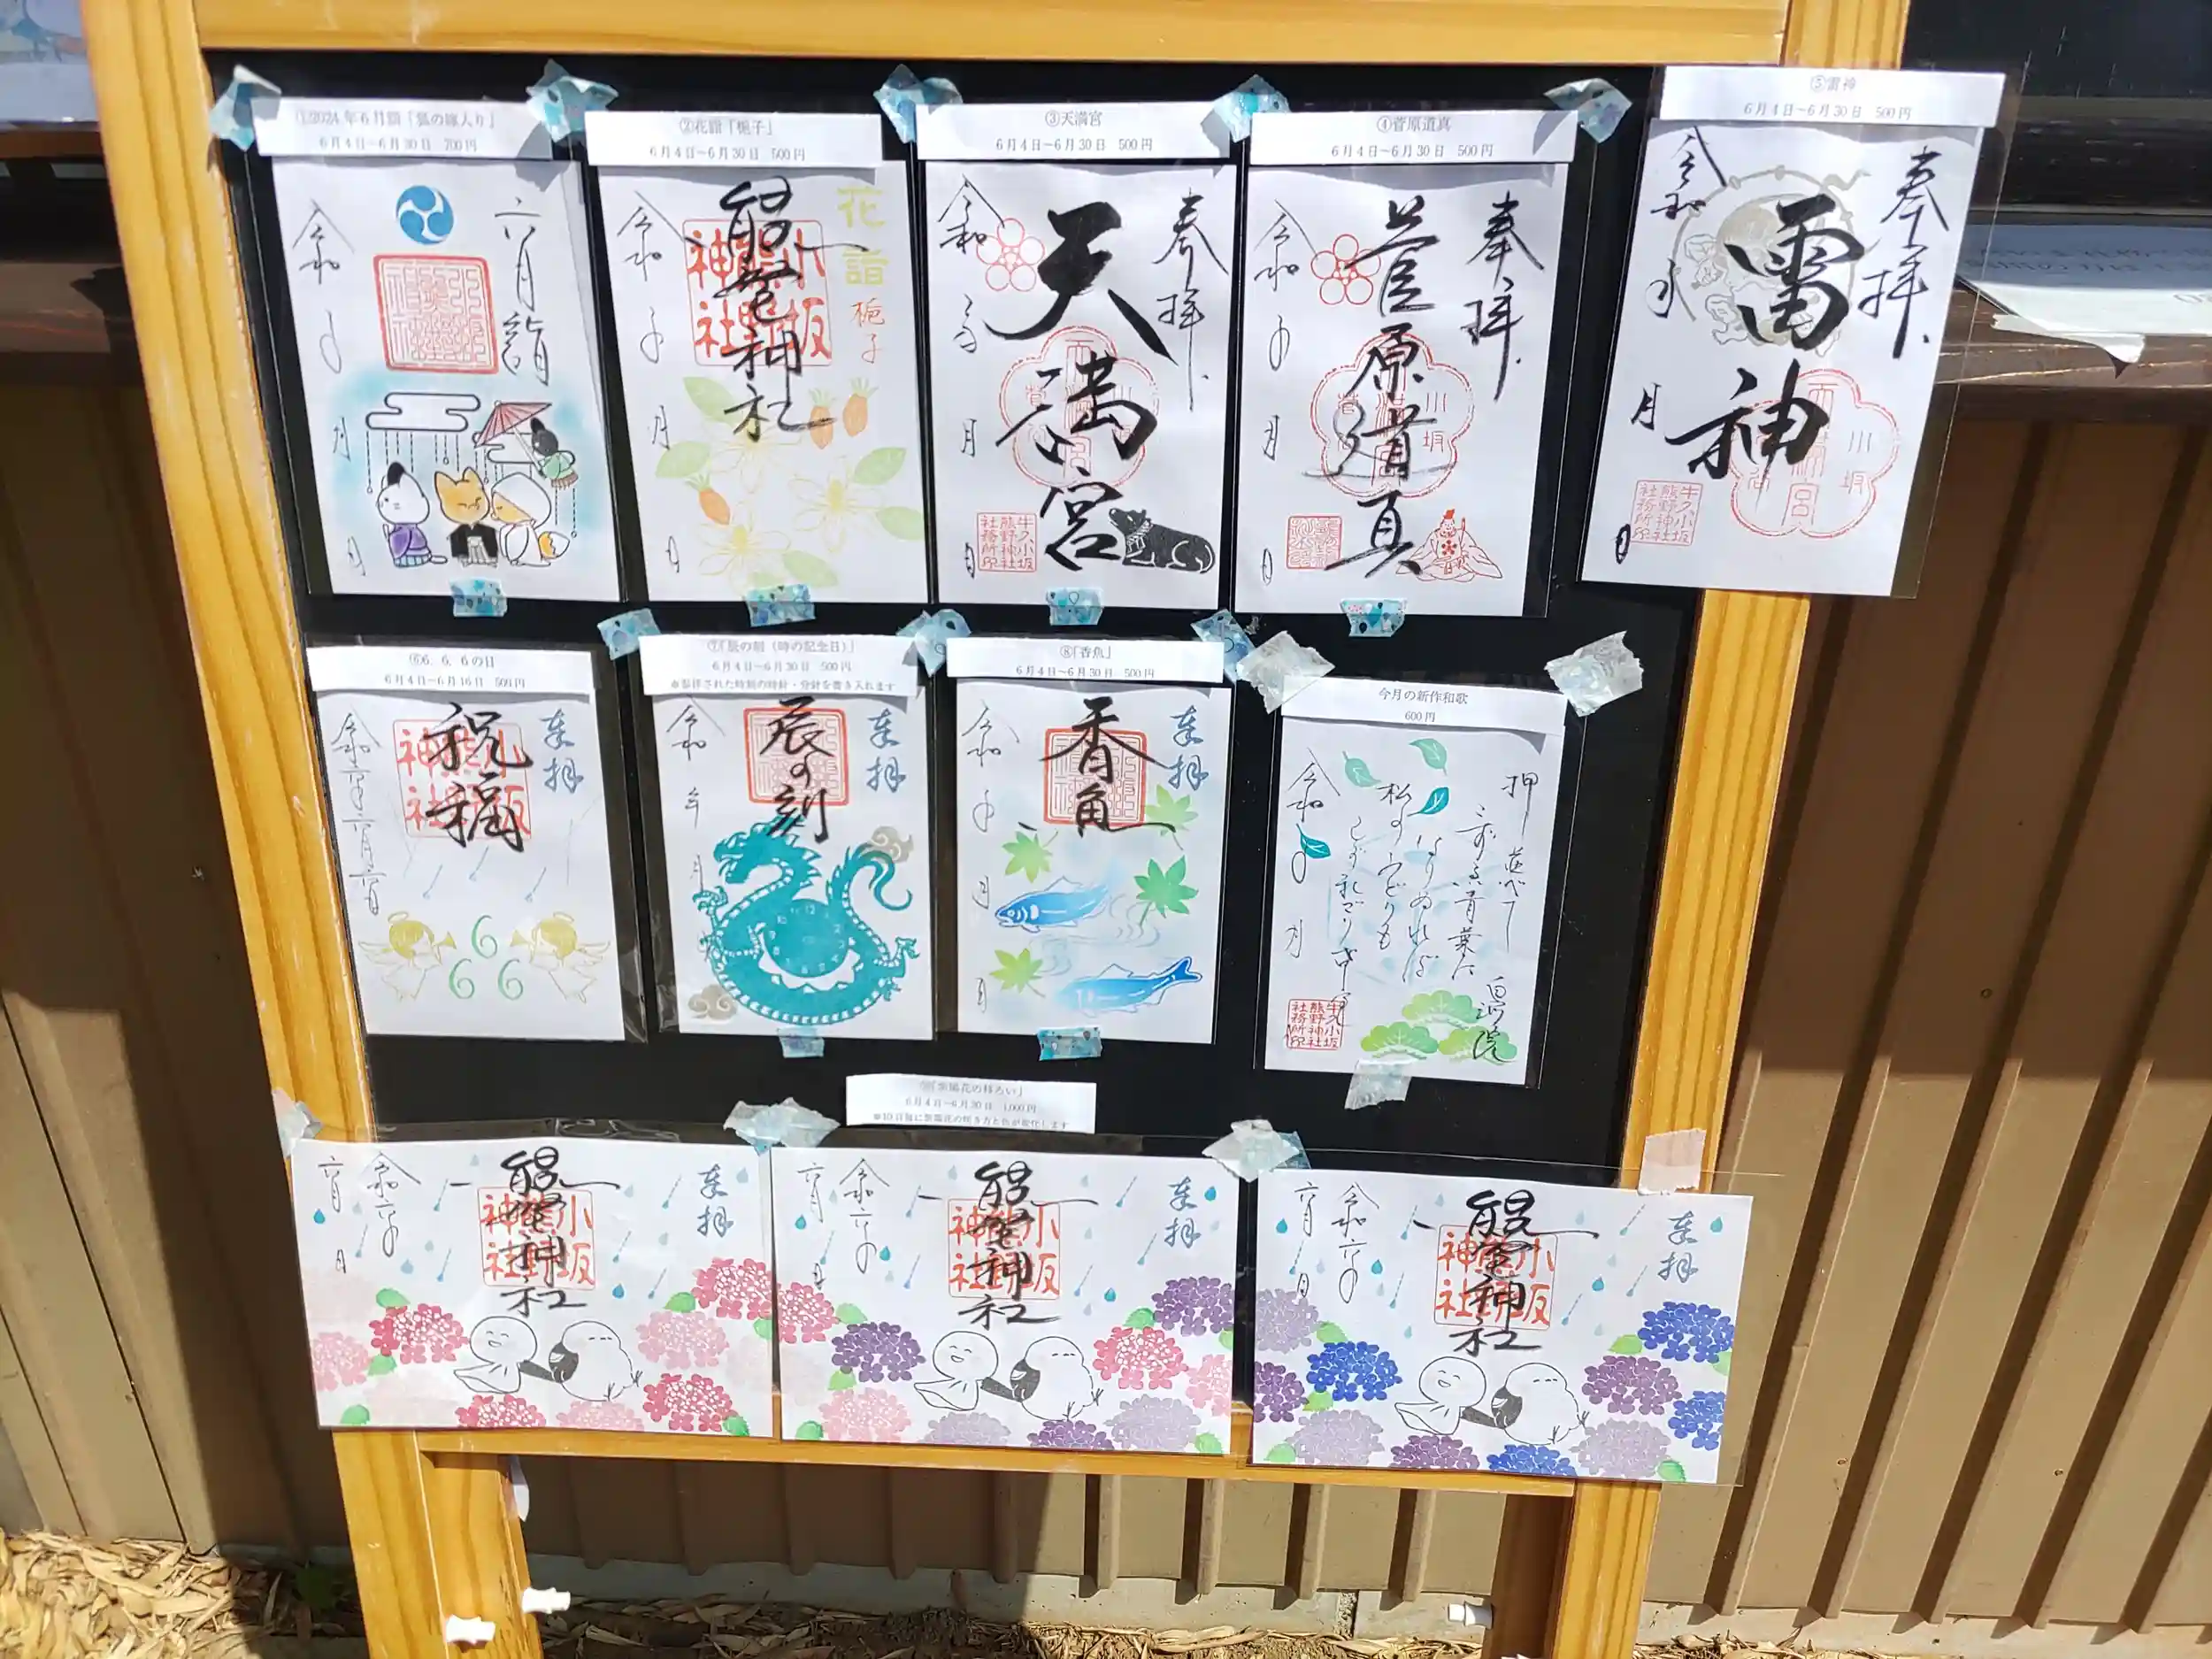 ①2024年6月詣「狐の嫁入り」
6月4日～6月30日 700円
六月詣
令和
月
日
②花詣「梔子」
6月4日～6月30日 500円
花詣
梔子
熊野神社
小坂熊野神社
令和
年
月
日
③天満宮
6月4日～6月30日 500円
奉拝
天満宮
令和
月
日
牛久小坂
熊野神社
社務所印
④菅原道真
6月4日～6月30日 500円
奉拝
菅原道真
令和
年
月
日
⑤雷神
6月4日～6月30日 500円
奉拝
雷神
令和
月
日
牛久小坂
熊野神社
社務所印
⑥6.6.6の日
6月4日～6月16日 500円
奉拝
祝福
小坂熊野神社
令和六年六月六日
6
6 6
⑦「辰の刻（時の記念日）」
6月4日～6月30日 500円
※参拝された時刻の時針・分針を書き入れます
奉拝
辰の刻
令和
年
月
⑧「香魚」
6月4日～6月30日 500円
奉拝
香魚
令和
年
月
日
今月の新作和歌
600円
押し並べて
松のみどりも
令和
年
月
牛久小坂
熊野神社
社務所印
⑩「紫陽花の移ろい」
6月4日～6月30日 1,000円
※10日毎に紫陽花の咲き方と色が変化します
奉拝
熊野神社
小坂熊野神社
令和六年
六月
日
奉拝
熊野神社
小坂熊野神社
令和六年
六月
日
奉拝
熊野神社
小坂熊野神社
令和六年
六月
日